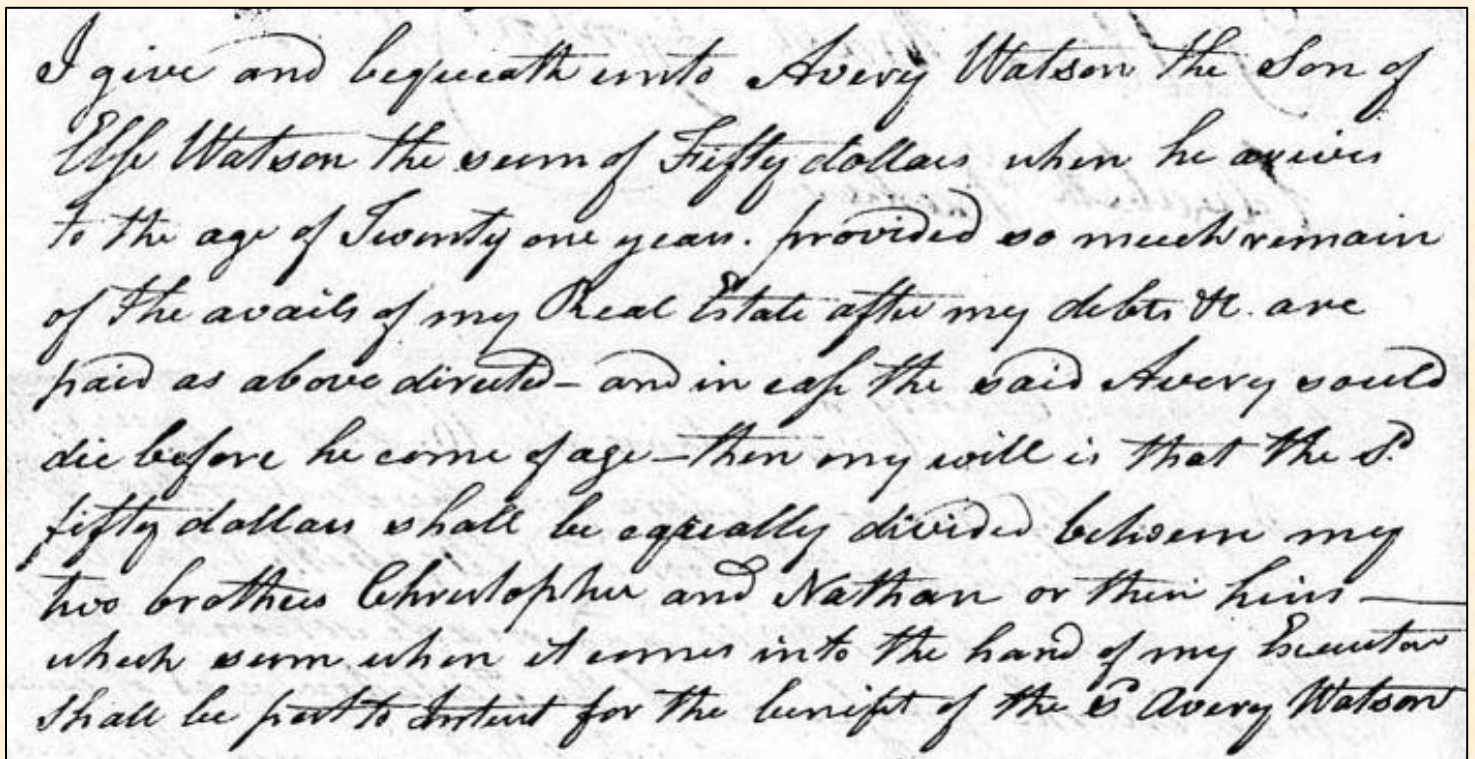 I give and bequeath unto Avery Watson the Son of
Else Watson the sum of Fifty dollars when he arives
to the age of Twenty one years. provided so much remain
of the avails of my Real Estate after my debts &c. are
paid as above directed – and in case the said Avery sould
die before he come of age – then my will is that the sd.
fifty dollars shall be equally divided between my
two brothers Christopher and Nathan or their heirs —
which sum when it comes into the hand of my Executor
Shall be put to Intrust for the benifit of the sd Avery Watson